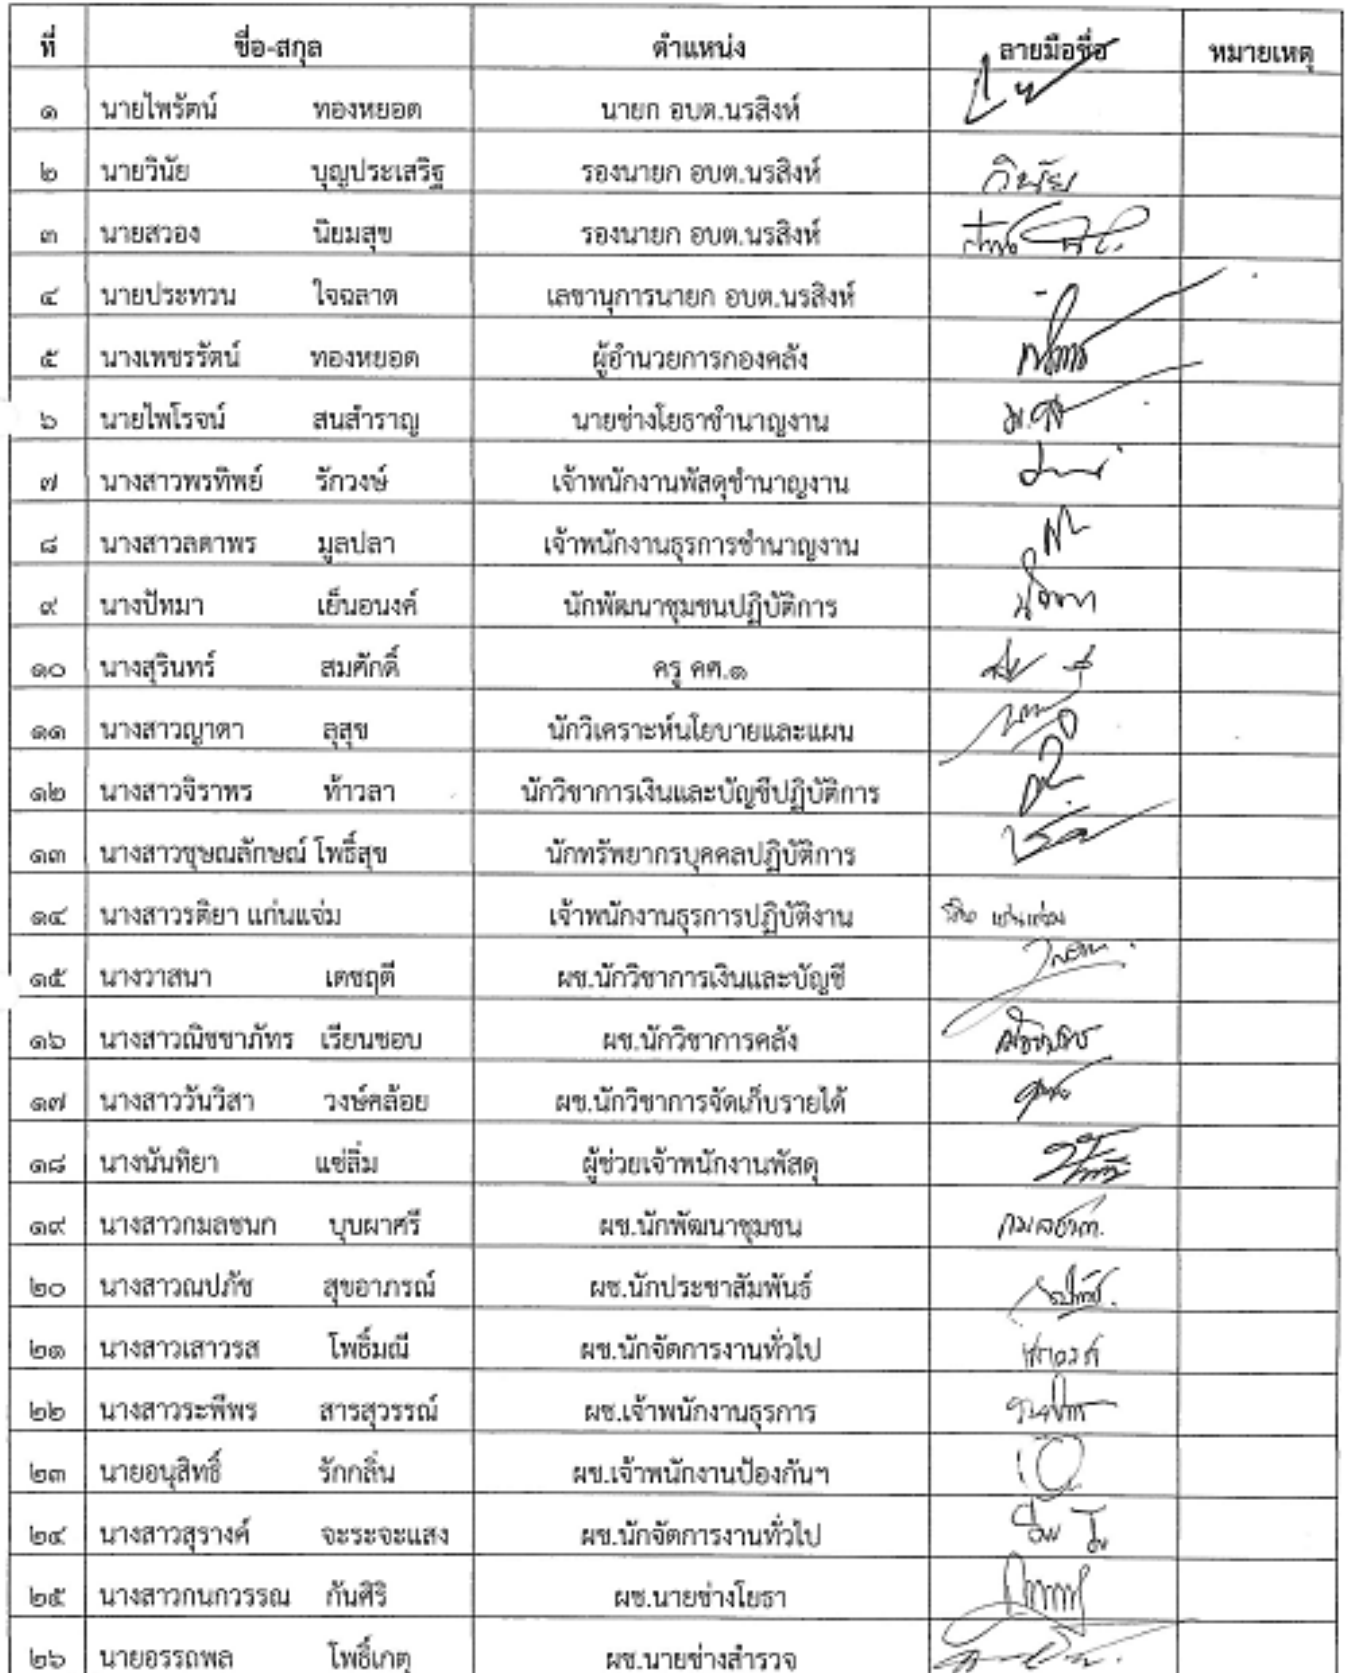 ที่ ชื่อ-สกุล ตำแหน่ง ลายมือชื่อ หมายเหตุ
๑ นายไพรัตน์ ทองหยอด นายก อบต.นรสิงห์
๒ นายวินัย บุญประเสริฐ รองนายก อบต.นรสิงห์ วินัย
๓ นายสวอง นิยมสุข รองนายก อบต.นรสิงห์
๔ นายประทวน ใจฉลาด เลขานุการนายก อบต.นรสิงห์
๕ นางเพชรรัตน์ ทองหยอด ผู้อำนวยการกองคลัง
๖ นายไพโรจน์ สนสำราญ นายช่างโยธาชำนาญงาน
๗ นางสาวพรทิพย์ รักวงษ์ เจ้าพนักงานพัสดุชำนาญงาน
๘ นางสาวลดาพร มูลปลา เจ้าพนักงานธุรการชำนาญงาน
๙ นางปัทมา เย็นอนงค์ นักพัฒนาชุมชนปฏิบัติการ
๑๐ นางสุรินทร์ สมศักดิ์ ครู คศ.๑
๑๑ นางสาวญาดา ลุสุข นักวิเคราะห์นโยบายและแผน
๑๒ นางสาวจิราพร ท้าวลา นักวิชาการเงินและบัญชีปฏิบัติการ
๑๓ นางสาวชุษณลักษณ์ โพธิ์สุข นักทรัพยากรบุคคลปฏิบัติการ
๑๔ นางสาวรติยา แก่นแจ่ม เจ้าพนักงานธุรการปฏิบัติงาน
๑๕ นางวาสนา เดชฤดี ผช.นักวิชาการเงินและบัญชี
๑๖ นางสาวณิชชาภัทร เรียนชอบ ผช.นักวิชาการคลัง
๑๗ นางสาววันวิสา วงษ์คล้อย ผช.นักวิชาการจัดเก็บรายได้
๑๘ นางนันทิยา แซ่ลิ่ม ผู้ช่วยเจ้าพนักงานพัสดุ
๑๙ นางสาวกมลชนก บุบผาศรี ผช.นักพัฒนาชุมชน กมลชนก
๒๐ นางสาวณปภัช สุขอาภรณ์ ผช.นักประชาสัมพันธ์
๒๑ นางสาวเสาวรส โพธิ์มณี ผช.นักจัดการงานทั่วไป
๒๒ นางสาวระพีพร สารสุวรรณ์ ผช.เจ้าพนักงานธุรการ
๒๓ นายอนุสิทธิ์ รักกลิ่น ผช.เจ้าพนักงานป้องกันฯ
๒๔ นางสาวสุรางค์ จะระจะแสง ผช.นักจัดการงานทั่วไป
๒๕ นางสาวกนกวรรณ กันศิริ ผช.นายช่างโยธา
๒๖ นายอรรถพล โพธิ์เกตุ ผช.นายช่างสำรวจ